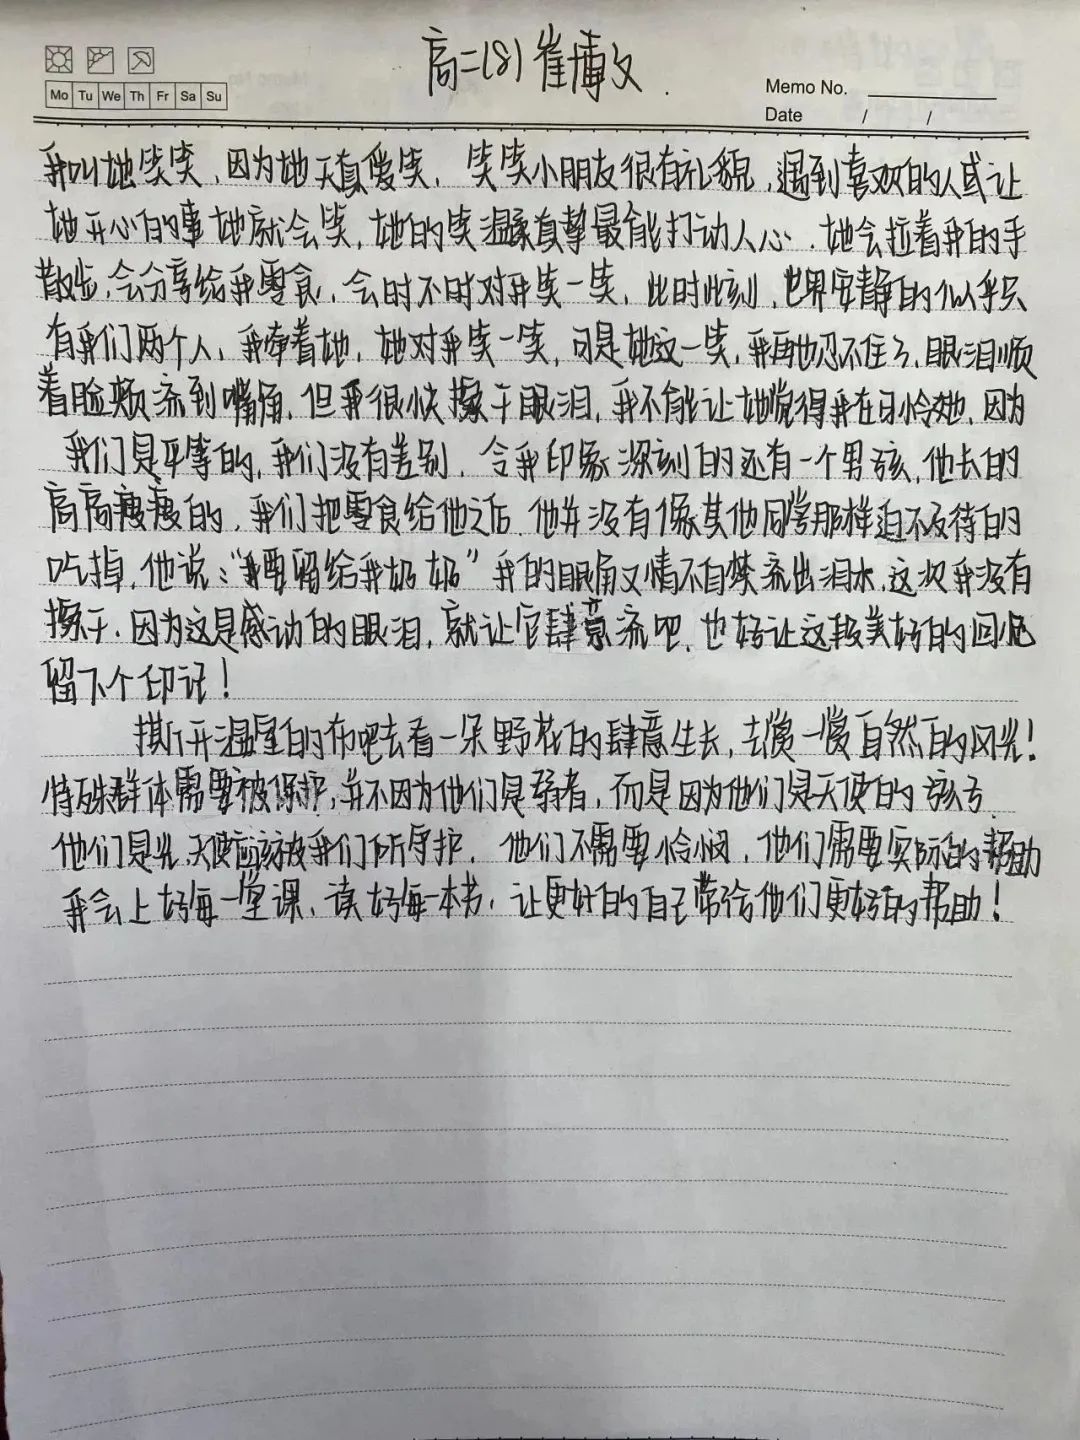 高二(8)崔博文.
Mo Tu We Th Fr Sa Su
Memo No.
Date / /
我叫她笑笑,因为她天真爱笑,笑笑小朋友很有礼貌,遇到喜欢的人或让
她开心的事她就会笑,她的笑温柔真挚最能打动人心.她会拉着我的手
散步,会分享给我零食,会时不时对我笑一笑,此时此刻,世界安静的似乎只
有我们两个人,我牵着她,她对我笑一笑,可是她这一笑,我再也忍不住了,眼泪顺
着脸颊流到嘴角,但我很快擦干眼泪,我不能让她觉得我在可怜她,因为
我们是平等的,我们没有差别.令我印象深刻的还有一个男孩,他长的
高高瘦瘦的,我们把零食给他之后,他并没有像其他同学那样迫不及待的
吃掉,他说:“我要留给我奶奶”我的眼角又情不自禁流出泪水,这次我没有
擦干.因为这是感动的眼泪,就让它肆意流吧,也好让这段美好的回忆
留下个印记!
撕开温室的布吧去看一朵野花的肆意生长,去赏一赏自然的风光!
特殊群体需要被保护,并不因为他们是弱者,而是因为他们是天使的孩子
他们是光,天使应该被我们所守护.他们不需要怜悯,他们需要实际的帮助
我会上好每一堂课,读好每一本书,让更好的自己带给他们更好的帮助!